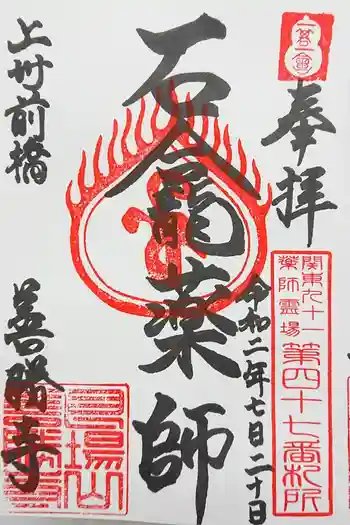 奉拝
関東九十一
薬師霊場
第四十七番札所
令和二年七日二十日
石龕薬師
上州前橋
善勝寺